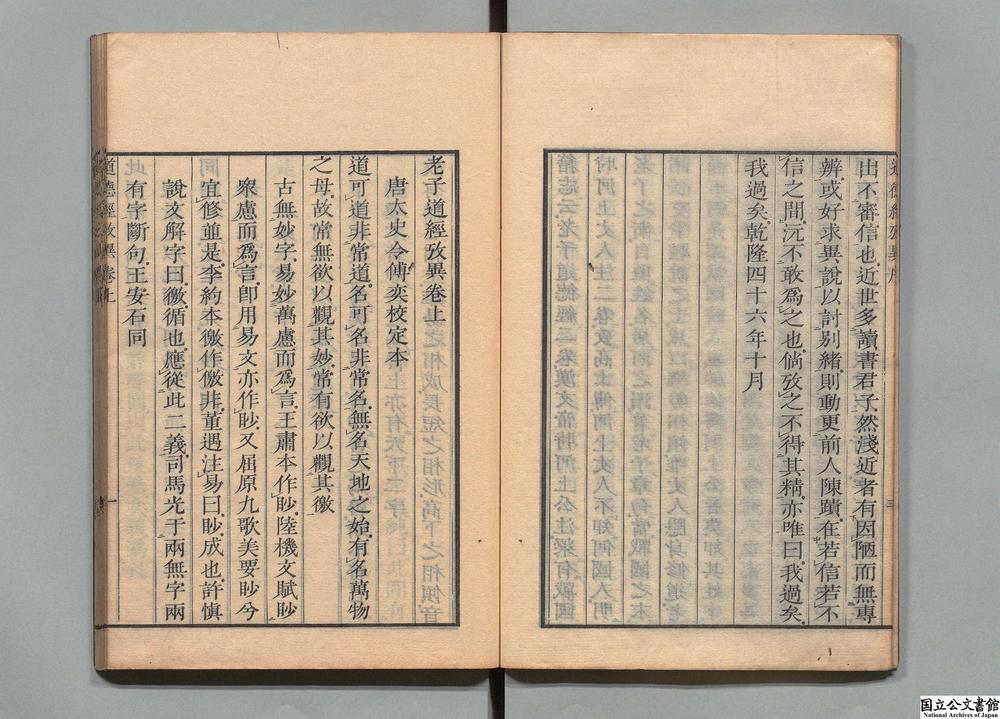 出不審信也近世多讀書君子然淺近者有因陋而無專
辨或好求異說以討別緒則動更前人陳蹟在若信若不
信之間沅不敢為之也倘攷之不得其精亦唯曰我過矣
我過矣乾隆四十六年十月
老子道經攷異卷上
唐太史令傅奕校定本
道可道非常道名可名非常名無名天地之始有名萬物
之母故常無欲以觀其妙常有欲以觀其徼
古無妙字易妙萬慮而為言王肅本作眇陸機文賦眇
衆慮而為言卽用易文亦作眇又屈原九歌美要眇兮
宜修並是李約本徼作儌非董遇注易曰眇成也許愼
說文解字曰徼循也應從此二義司馬光于兩無字兩
有字斷句王安石同
道德經攷異卷上
一
国立公文書館
National Archives of Japan